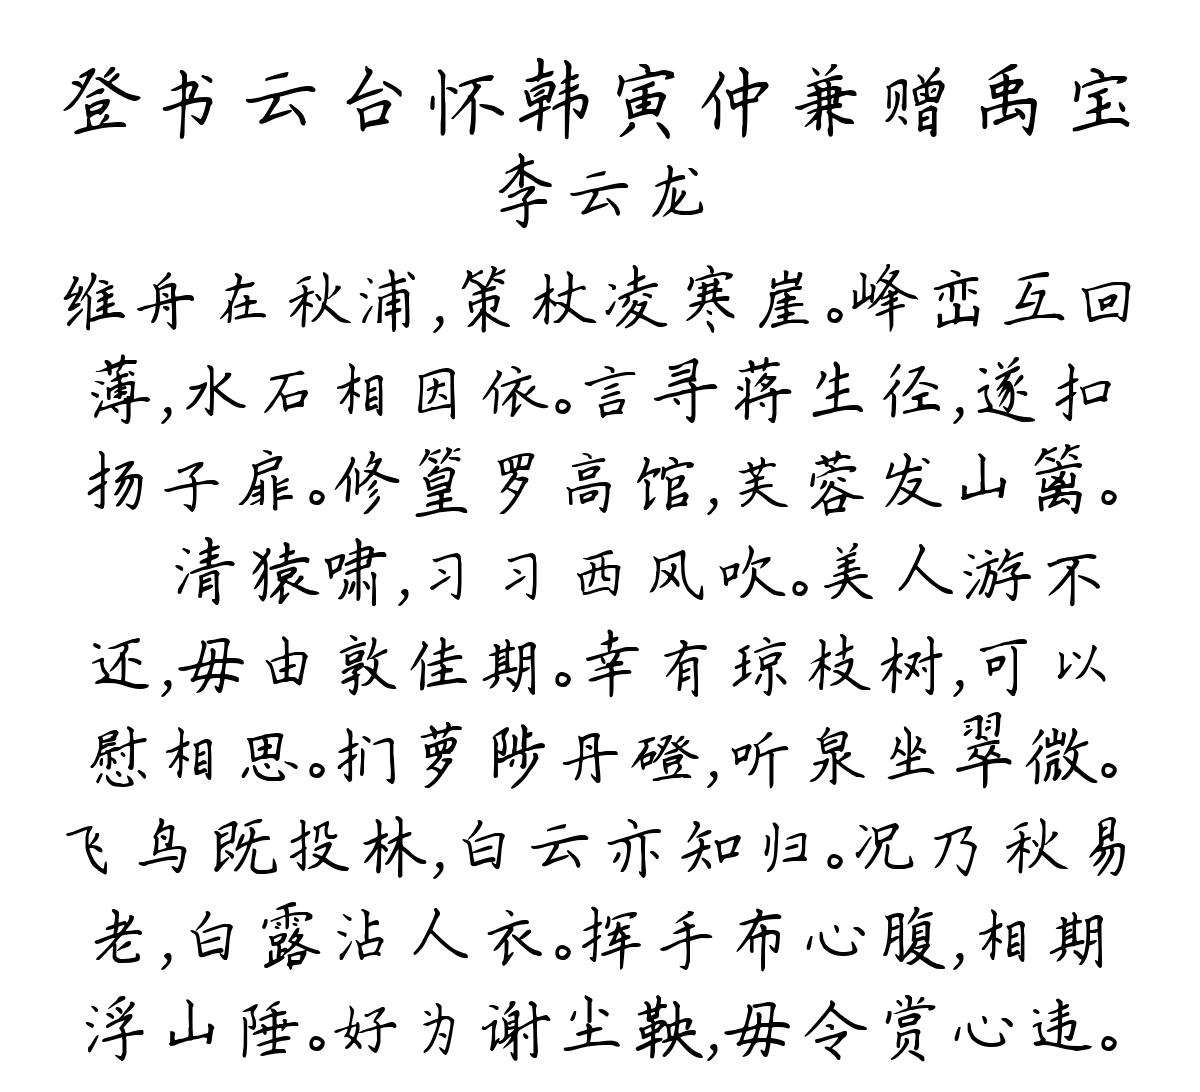 登书云台怀韩寅仲兼赠禹宝
李云龙
维舟在秋浦,策杖凌寒崖。峰峦互回
薄,水石相因依。言寻蒋生径,遂扣
扬子扉。修篁罗高馆,芙蓉发山篱。
清猿啸,习习西风吹。美人游不
还,毋由敦佳期。幸有琼枝树,可以
慰相思。扪萝陟丹磴,听泉坐翠微。
飞鸟既投林,白云亦知归。况乃秋易
老,白露沾人衣。挥手布心腹,相期
浮山陲。好为谢尘鞅,毋令赏心违。